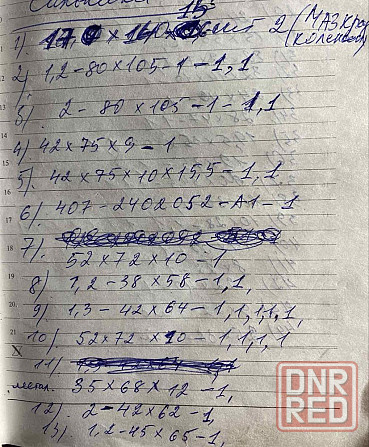 Сальники
1) 2 (МАЗ Краз
(коленвал)
2) 1,2-80×105-1-1,1
3) 2-80×105-1-1,1
4) 42×75×9-1
5) 42×75×10×15,5-1,1
6) 407-2402052-А1-1
7)
52×72×10-1
8) 1,2-38×58-1,1,
9) 1,3-42×64-1,1,1,1,
10) 52×72-10-1,1,1,1
11)
метал. 35×68×12-1,
12) 2-42×62-1,
13) 1,2-45×65-1,
DNR
RED